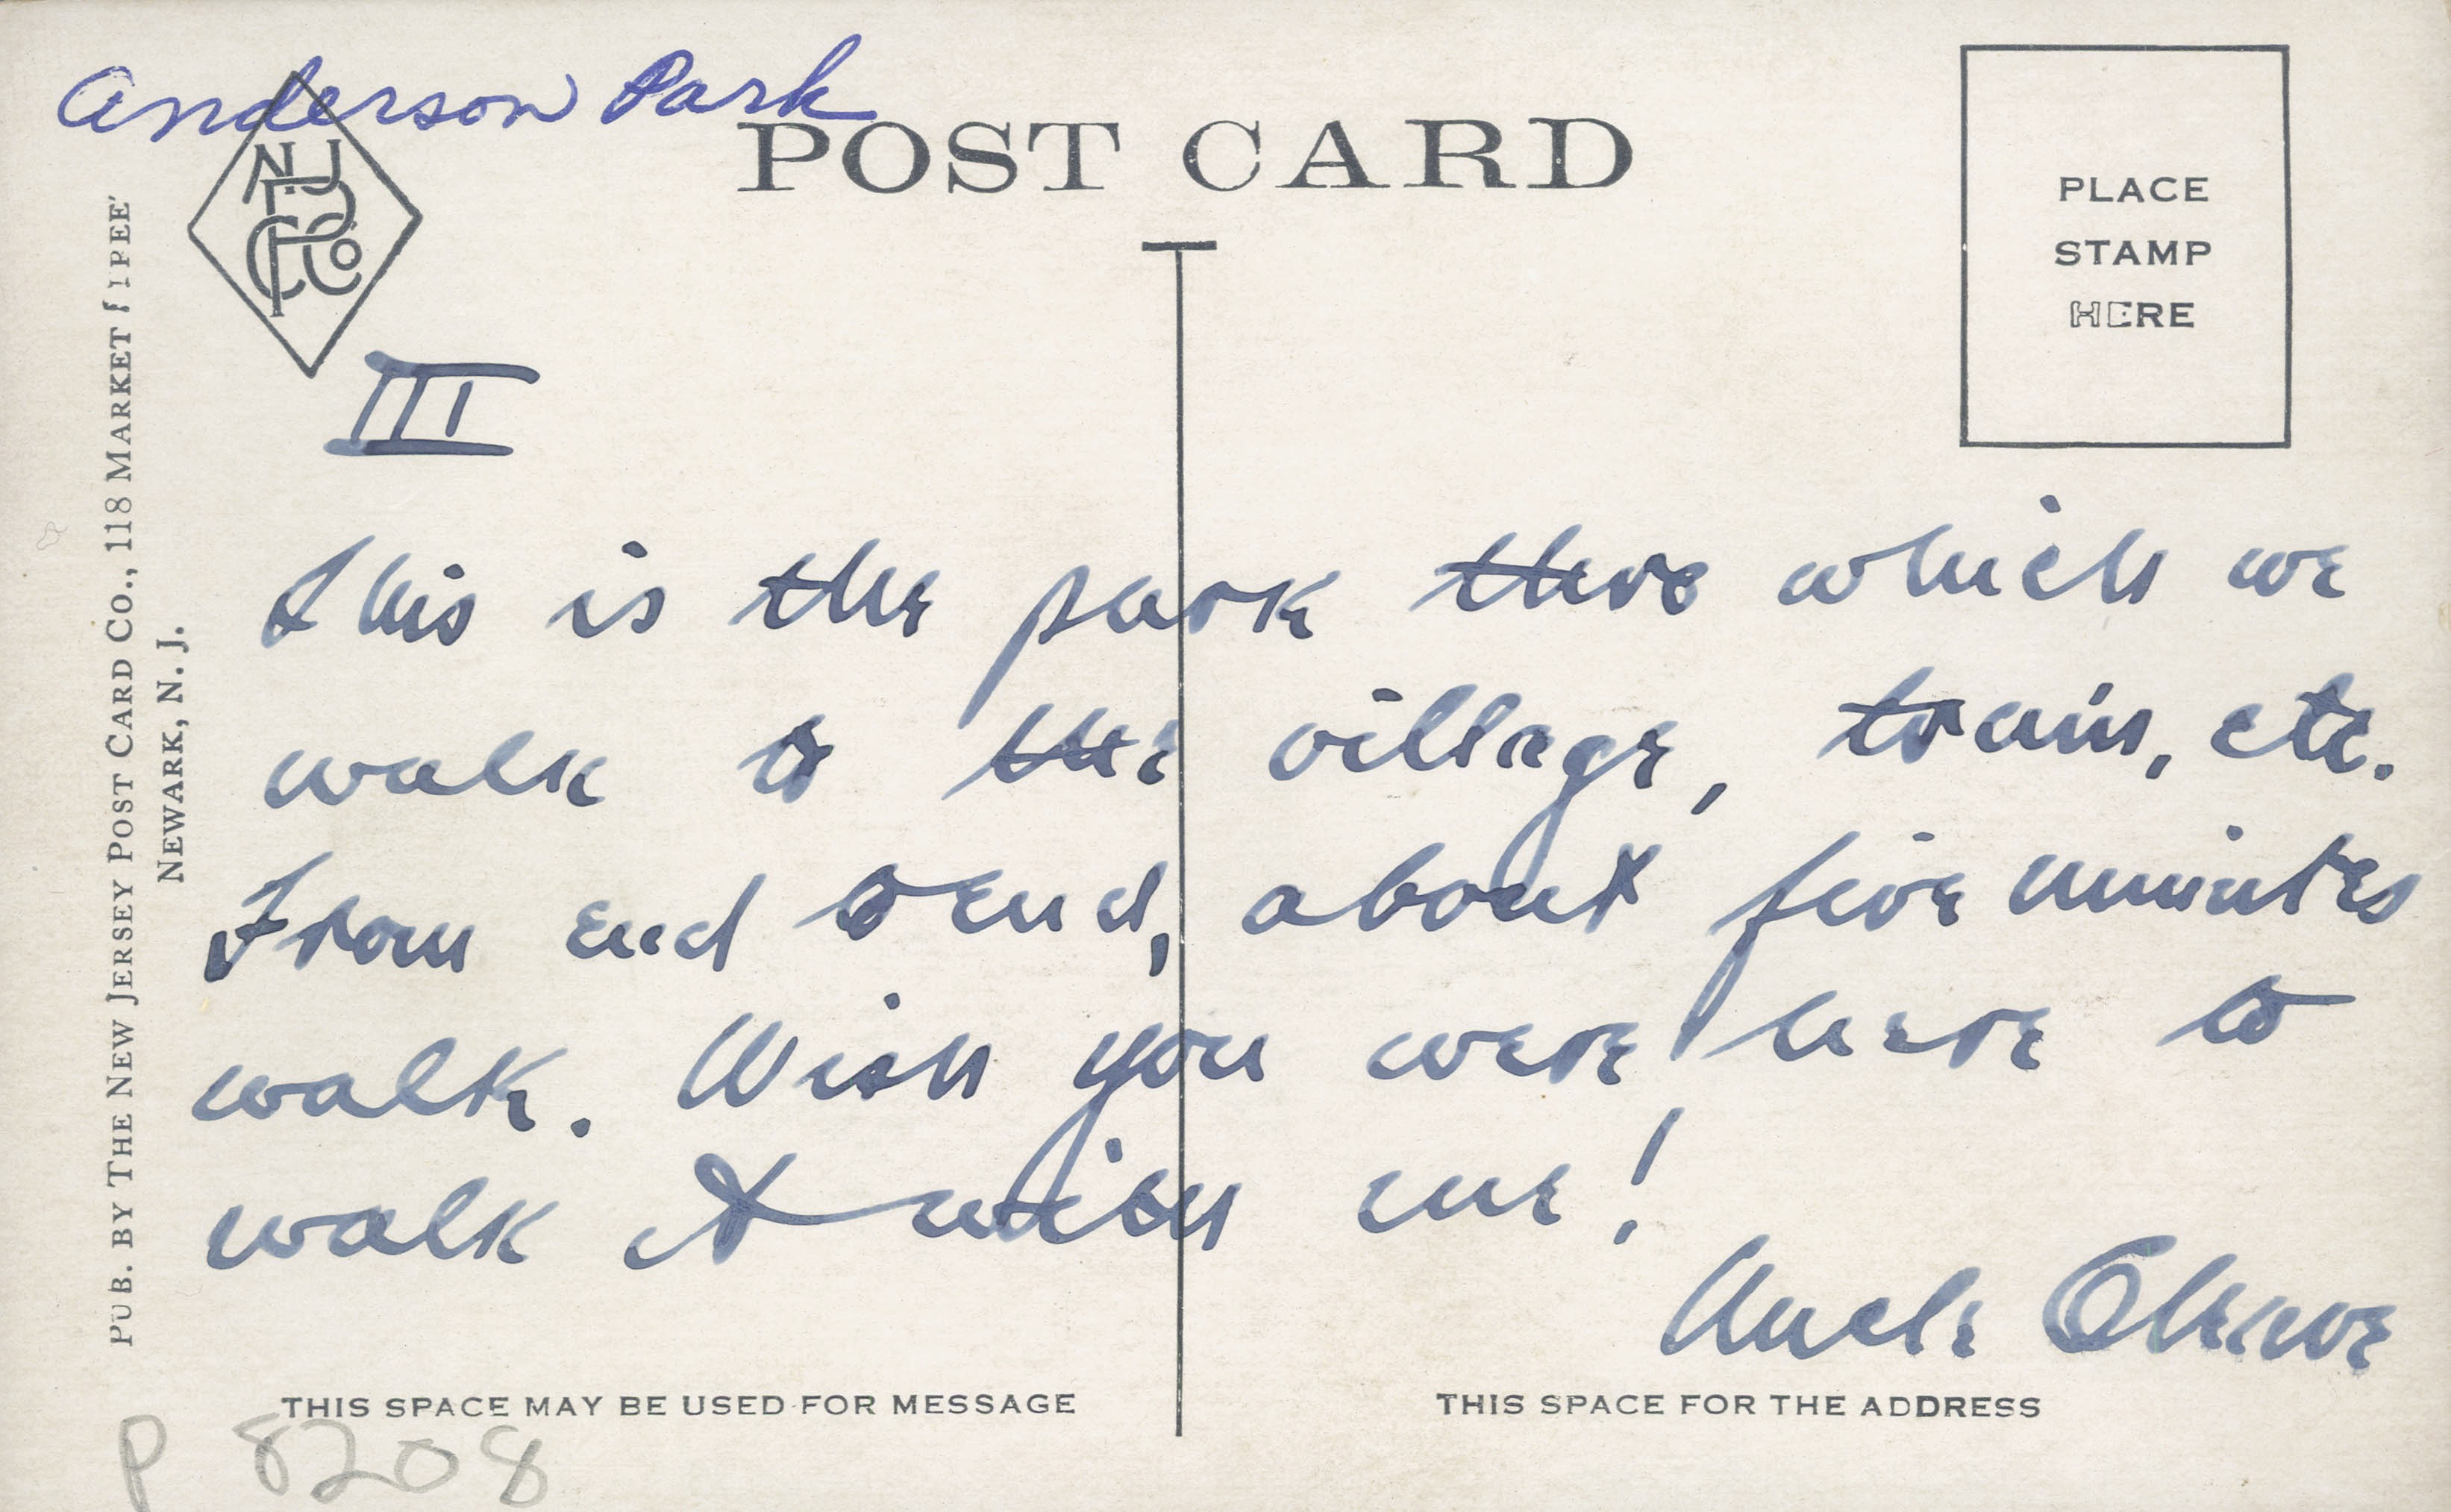 Anderson Park
POST CARD
NJ
PCCo
PLACE
STAMP
HERE
III
This is the park thro which we
walk to the village, train, etc.
From end to end, about five minutes
walk. Wish you were here to
walk it with me!
Uncle
THIS SPACE MAY BE USED FOR MESSAGE
THIS SPACE FOR THE ADDRESS
P 8208
PUB. BY THE NEW JERSEY POST CARD CO., 118 MARKET
NEWARK, N. J.